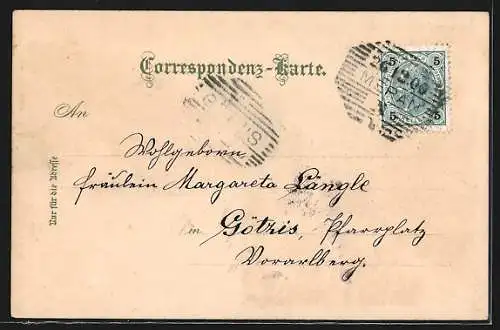 Correspondenz-Karte.
5 5
MERAN
5 5
An
Wohlgeboren
Fräulein Margareta Längle
in Götzis, Pfarrplatz
Vorarlberg.
Nur für die Adresse